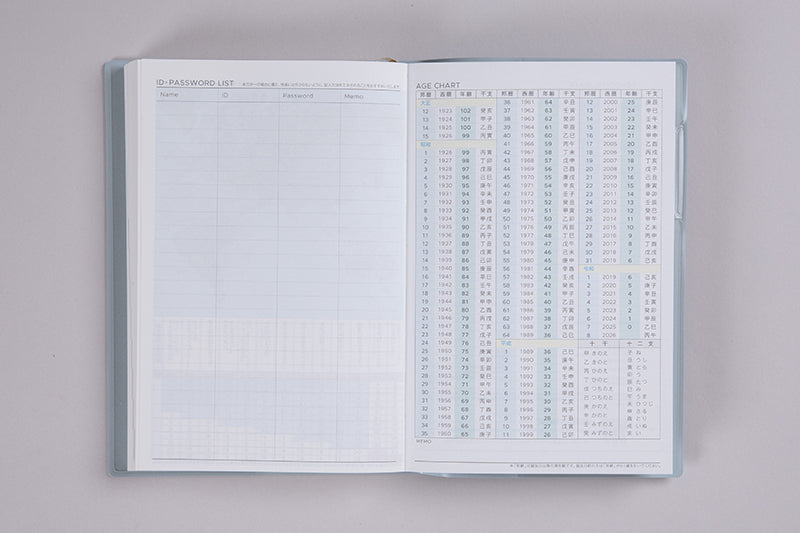 ID・PASSWORD LIST
Name ID Password Memo
AGE CHART
邦暦 西暦 年齢 干支
大正
12 1923 102 癸亥
13 1924 101 甲子
14 1925 100 乙丑
15 1926 99 丙寅
昭和
1 1926 99 丙寅
2 1927 98 丁卯
3 1928 97 戊辰
4 1929 96 己巳
5 1930 95 庚午
6 1931 94 辛未
7 1932 93 壬申
8 1933 92 癸酉
9 1934 91 甲戌
10 1935 90 乙亥
11 1936 89 丙子
12 1937 88 丁丑
13 1938 87 戊寅
14 1939 86 己卯
15 1940 85 庚辰
16 1941 84 辛巳
17 1942 83 壬午
18 1943 82 癸未
19 1944 81 甲申
20 1945 80 乙酉
21 1946 79 丙戌
22 1947 78 丁亥
23 1948 77 戊子
24 1949 76 己丑
25 1950 75 庚寅
26 1951 74 辛卯
27 1952 73 壬辰
28 1953 72 癸巳
29 1954 71 甲午
30 1955 70 乙未
31 1956 69 丙申
32 1957 68 丁酉
33 1958 67 戊戌
34 1959 66 己亥
35 1960 65 庚子
邦暦 西暦 年齢 干支
36 1961 64 辛丑
37 1962 63 壬寅
38 1963 62 癸卯
39 1964 61 甲辰
40 1965 60 乙巳
41 1966 59 丙午
42 1967 58 丁未
43 1968 57 戊申
44 1969 56 己酉
45 1970 55 庚戌
46 1971 54 辛亥
47 1972 53 壬子
48 1973 52 癸丑
49 1974 51 甲寅
50 1975 50 乙卯
51 1976 49 丙辰
52 1977 48 丁巳
53 1978 47 戊午
54 1979 46 己未
55 1980 45 庚申
56 1981 44 辛酉
57 1982 43 壬戌
58 1983 42 癸亥
59 1984 41 甲子
60 1985 40 乙丑
61 1986 39 丙寅
62 1987 38 丁卯
63 1988 37 戊辰
64 1989 36 己巳
平成
1 1989 36 己巳
2 1990 35 庚午
3 1991 34 辛未
4 1992 33 壬申
5 1993 32 癸酉
6 1994 31 甲戌
7 1995 30 乙亥
8 1996 29 丙子
9 1997 28 丁丑
10 1998 27 戊寅
11 1999 26 己卯
邦暦 西暦 年齢 干支
12 2000 25 庚辰
13 2001 24 辛巳
14 2002 23 壬午
15 2003 22 癸未
16 2004 21 甲申
17 2005 20 乙酉
18 2006 19 丙戌
19 2007 18 丁亥
20 2008 17 戊子
21 2009 16 己丑
22 2010 15 庚寅
23 2011 14 辛卯
24 2012 13 壬辰
25 2013 12 癸巳
26 2014 11 甲午
27 2015 10 乙未
28 2016 9 丙申
29 2017 8 丁酉
30 2018 7 戊戌
31 2019 6 己亥
令和
1 2019 6 己亥
2 2020 5 庚子
3 2021 4 辛丑
4 2022 3 壬寅
5 2023 2 癸卯
6 2024 1 甲辰
7 2025 0 乙巳
8 2026 丙午
十干 十二支
甲 きのえ
乙 きのと
丙 ひのえ
丁 ひのと
戊 つちのえ
己 つちのと
庚 かのえ
辛 かのと
壬 みずのえ
癸 みずのと
子 ね
丑 うし
寅 とら
卯 う
辰 たつ
巳 み
午 うま
未 ひつじ
申 さる
酉 とり
戌 いぬ
亥 い
MEMO